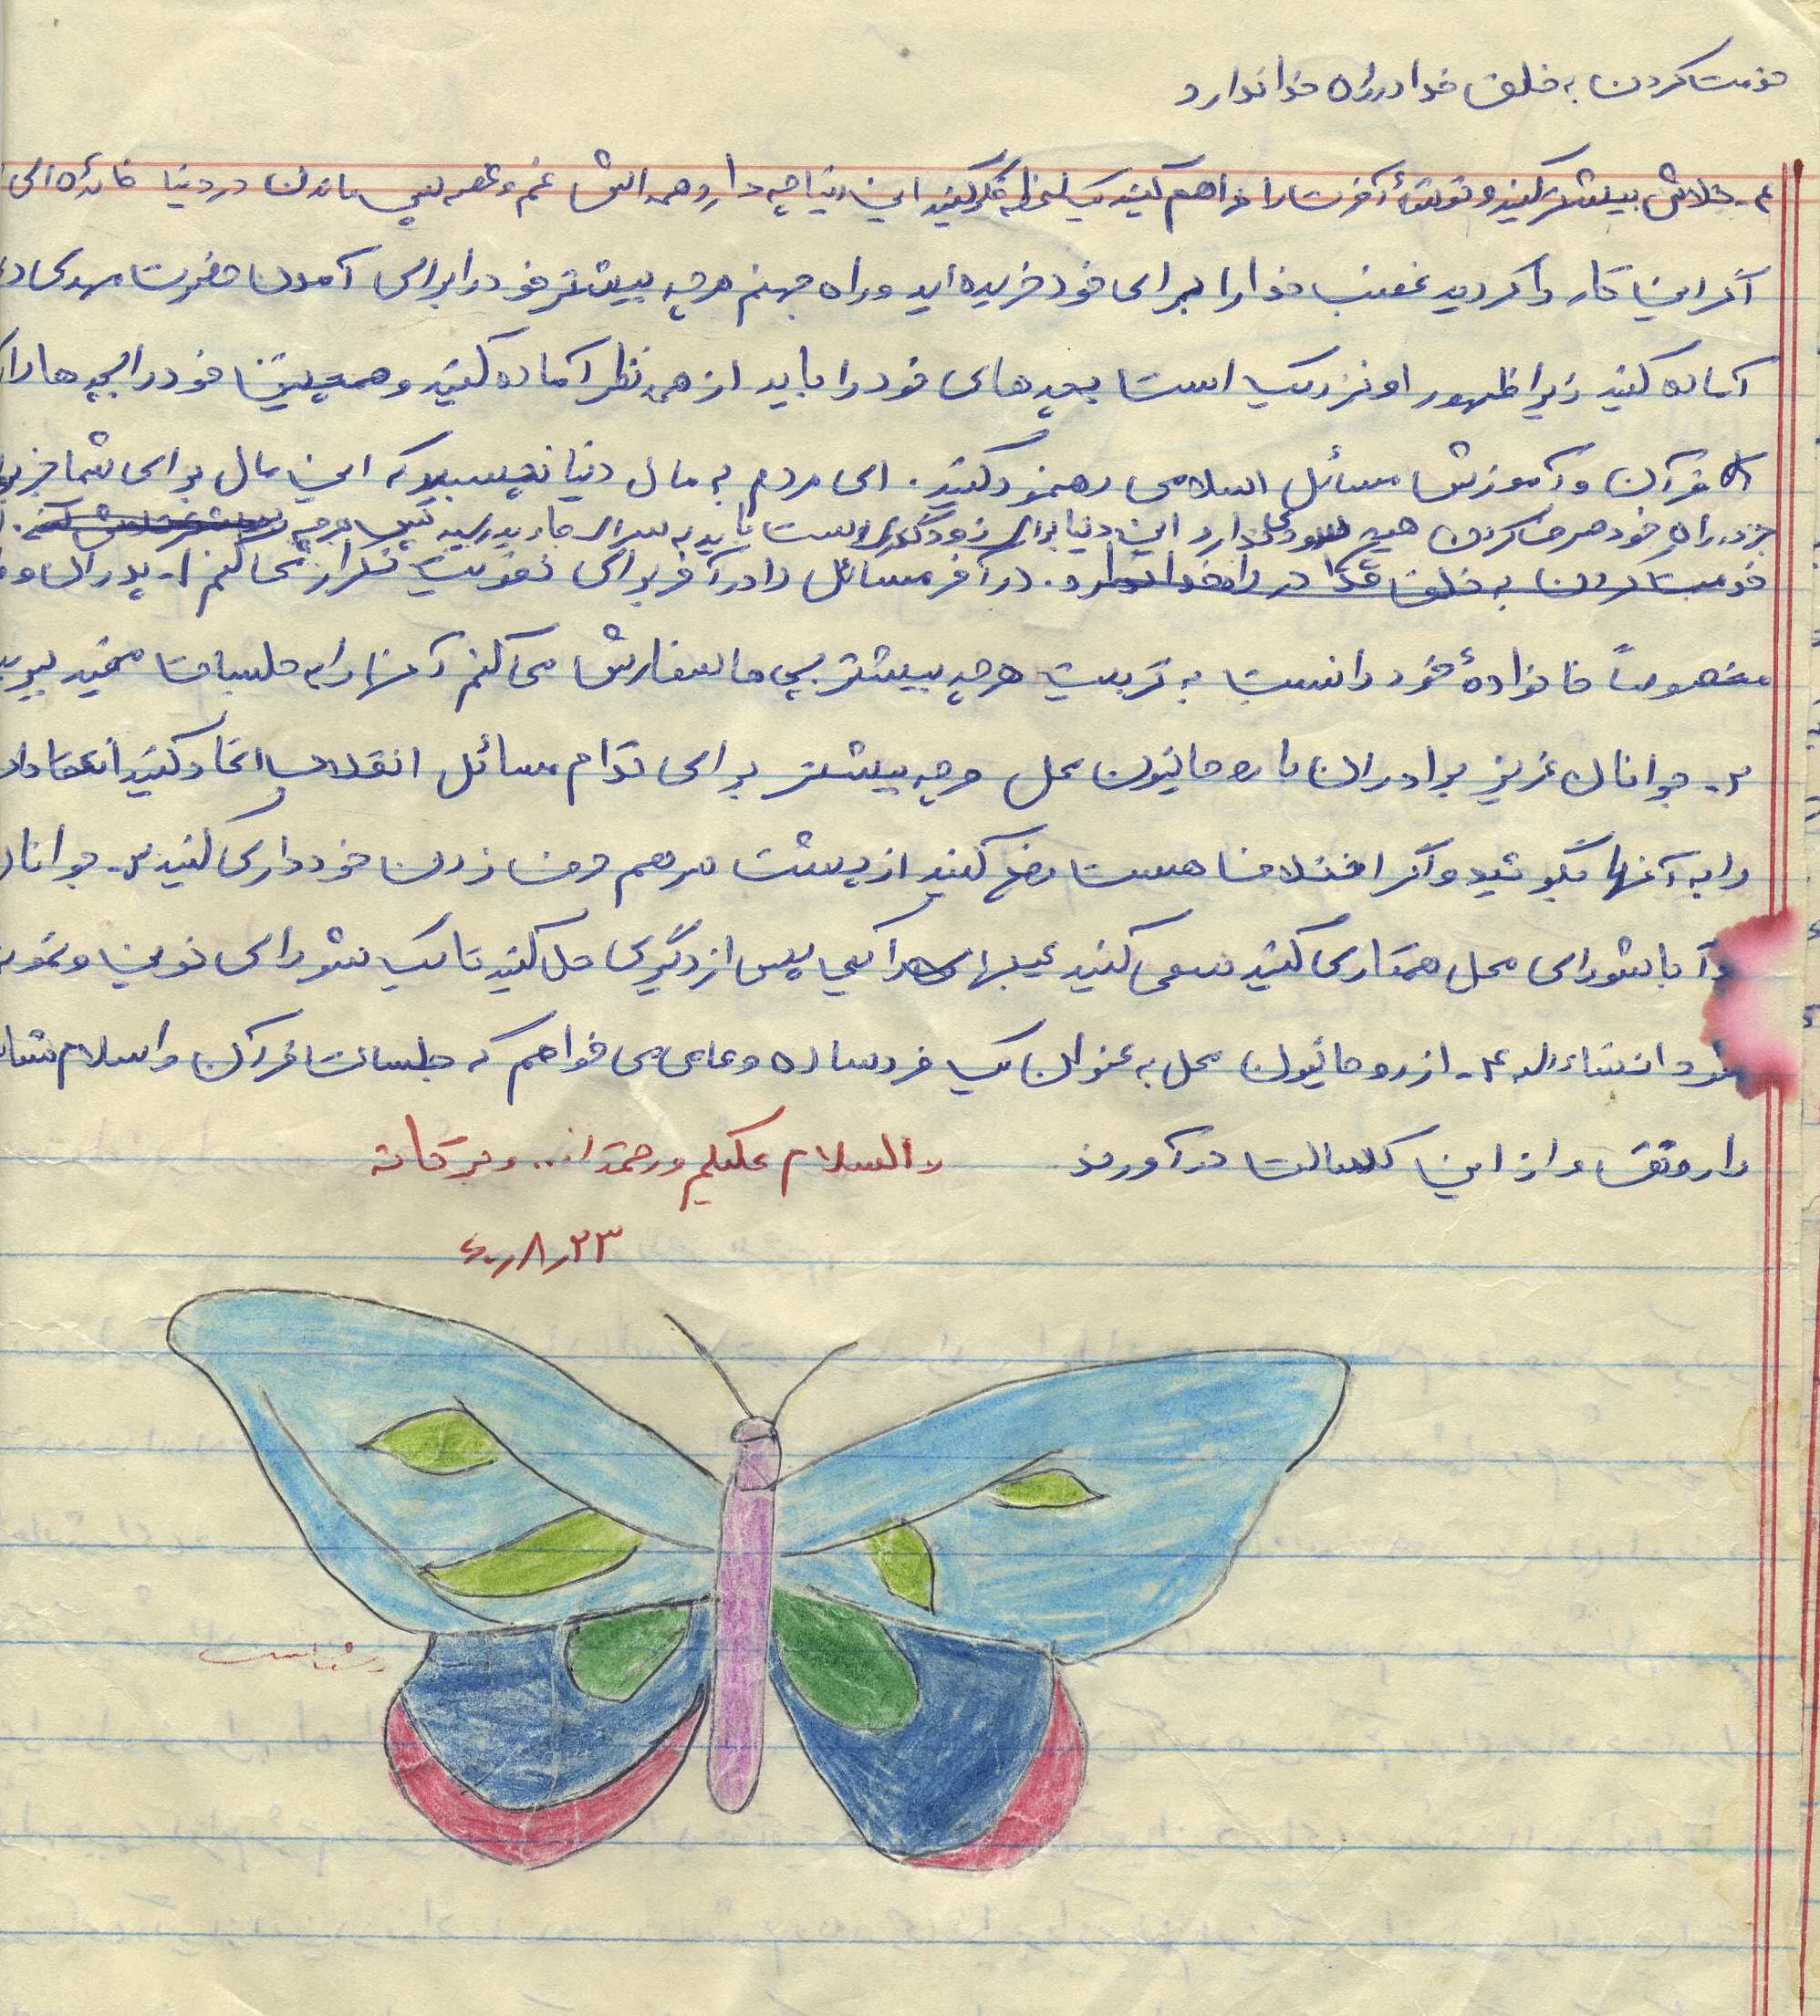 خدمت کردن به خلق خدا در راه خدا ندارد
تلاش بیشتر کنید و توشهٔ آخرت را فراهم کنید یک لحظه فکر کنید این دنیا چه دارد همه‌اش غم و غصه پس ماندن در دنیا فائده‌ای
اگر این کار را کردید غضب خدا را برای خود خریده‌اید و راه جهنم هرچه بیشتر خود را برای آمدن حضرت مهدی
آماده کنید زیرا ظهور او نزدیک است بچه‌های خود را باید از همه نظر آماده کنید و همچنین خود را بچه‌ها را
قرآن و آموزش مسائل اسلامی رهنمود کنید. ای مردم به مال دنیا نچسبید که این مال برای شما جز
جز در راه خود صرف کردن هیچ سودی ندارد این دنیا برای زودگذری است باید به سرای جاوید رسید پس هرچه
خدمت کردن به خلق خدا در راه خدا ندارد. در آخر مسائل را در آخر برای تقویت تکرار می‌کنم ۱- پدران و
مخصوصاً خانوادهٔ خود را نسبت به تربیت هرچه بیشتر بچه‌ها سفارش می‌کنم آنها را به جلسات مفید ببرید
۲- جوانان عزیز برادران با روحانیون محل هرچه بیشتر برای تداوم مسائل انقلاب اتحاد کنید انتقادات
را به آنها بگوئید و اگر اختلاف هست رفع کنید از پشت سر هم حرف زدن خودداری کنید ۳- جوانان
با شورای محل همکاری کنید سعی کنید عیبها را یکی پس از دیگری حل کنید تا یک شورای خوبی و نمونه
انشاءالله ۴- از روحانیون محل به عنوان یک فرد ساده و عامی می‌خواهم که جلسات قرآن و اسلام شناسی
را رونق و از این کسالت درآورند والسلام علیکم و رحمة ا... و برکاته
۶۰٫۸٫۲۳